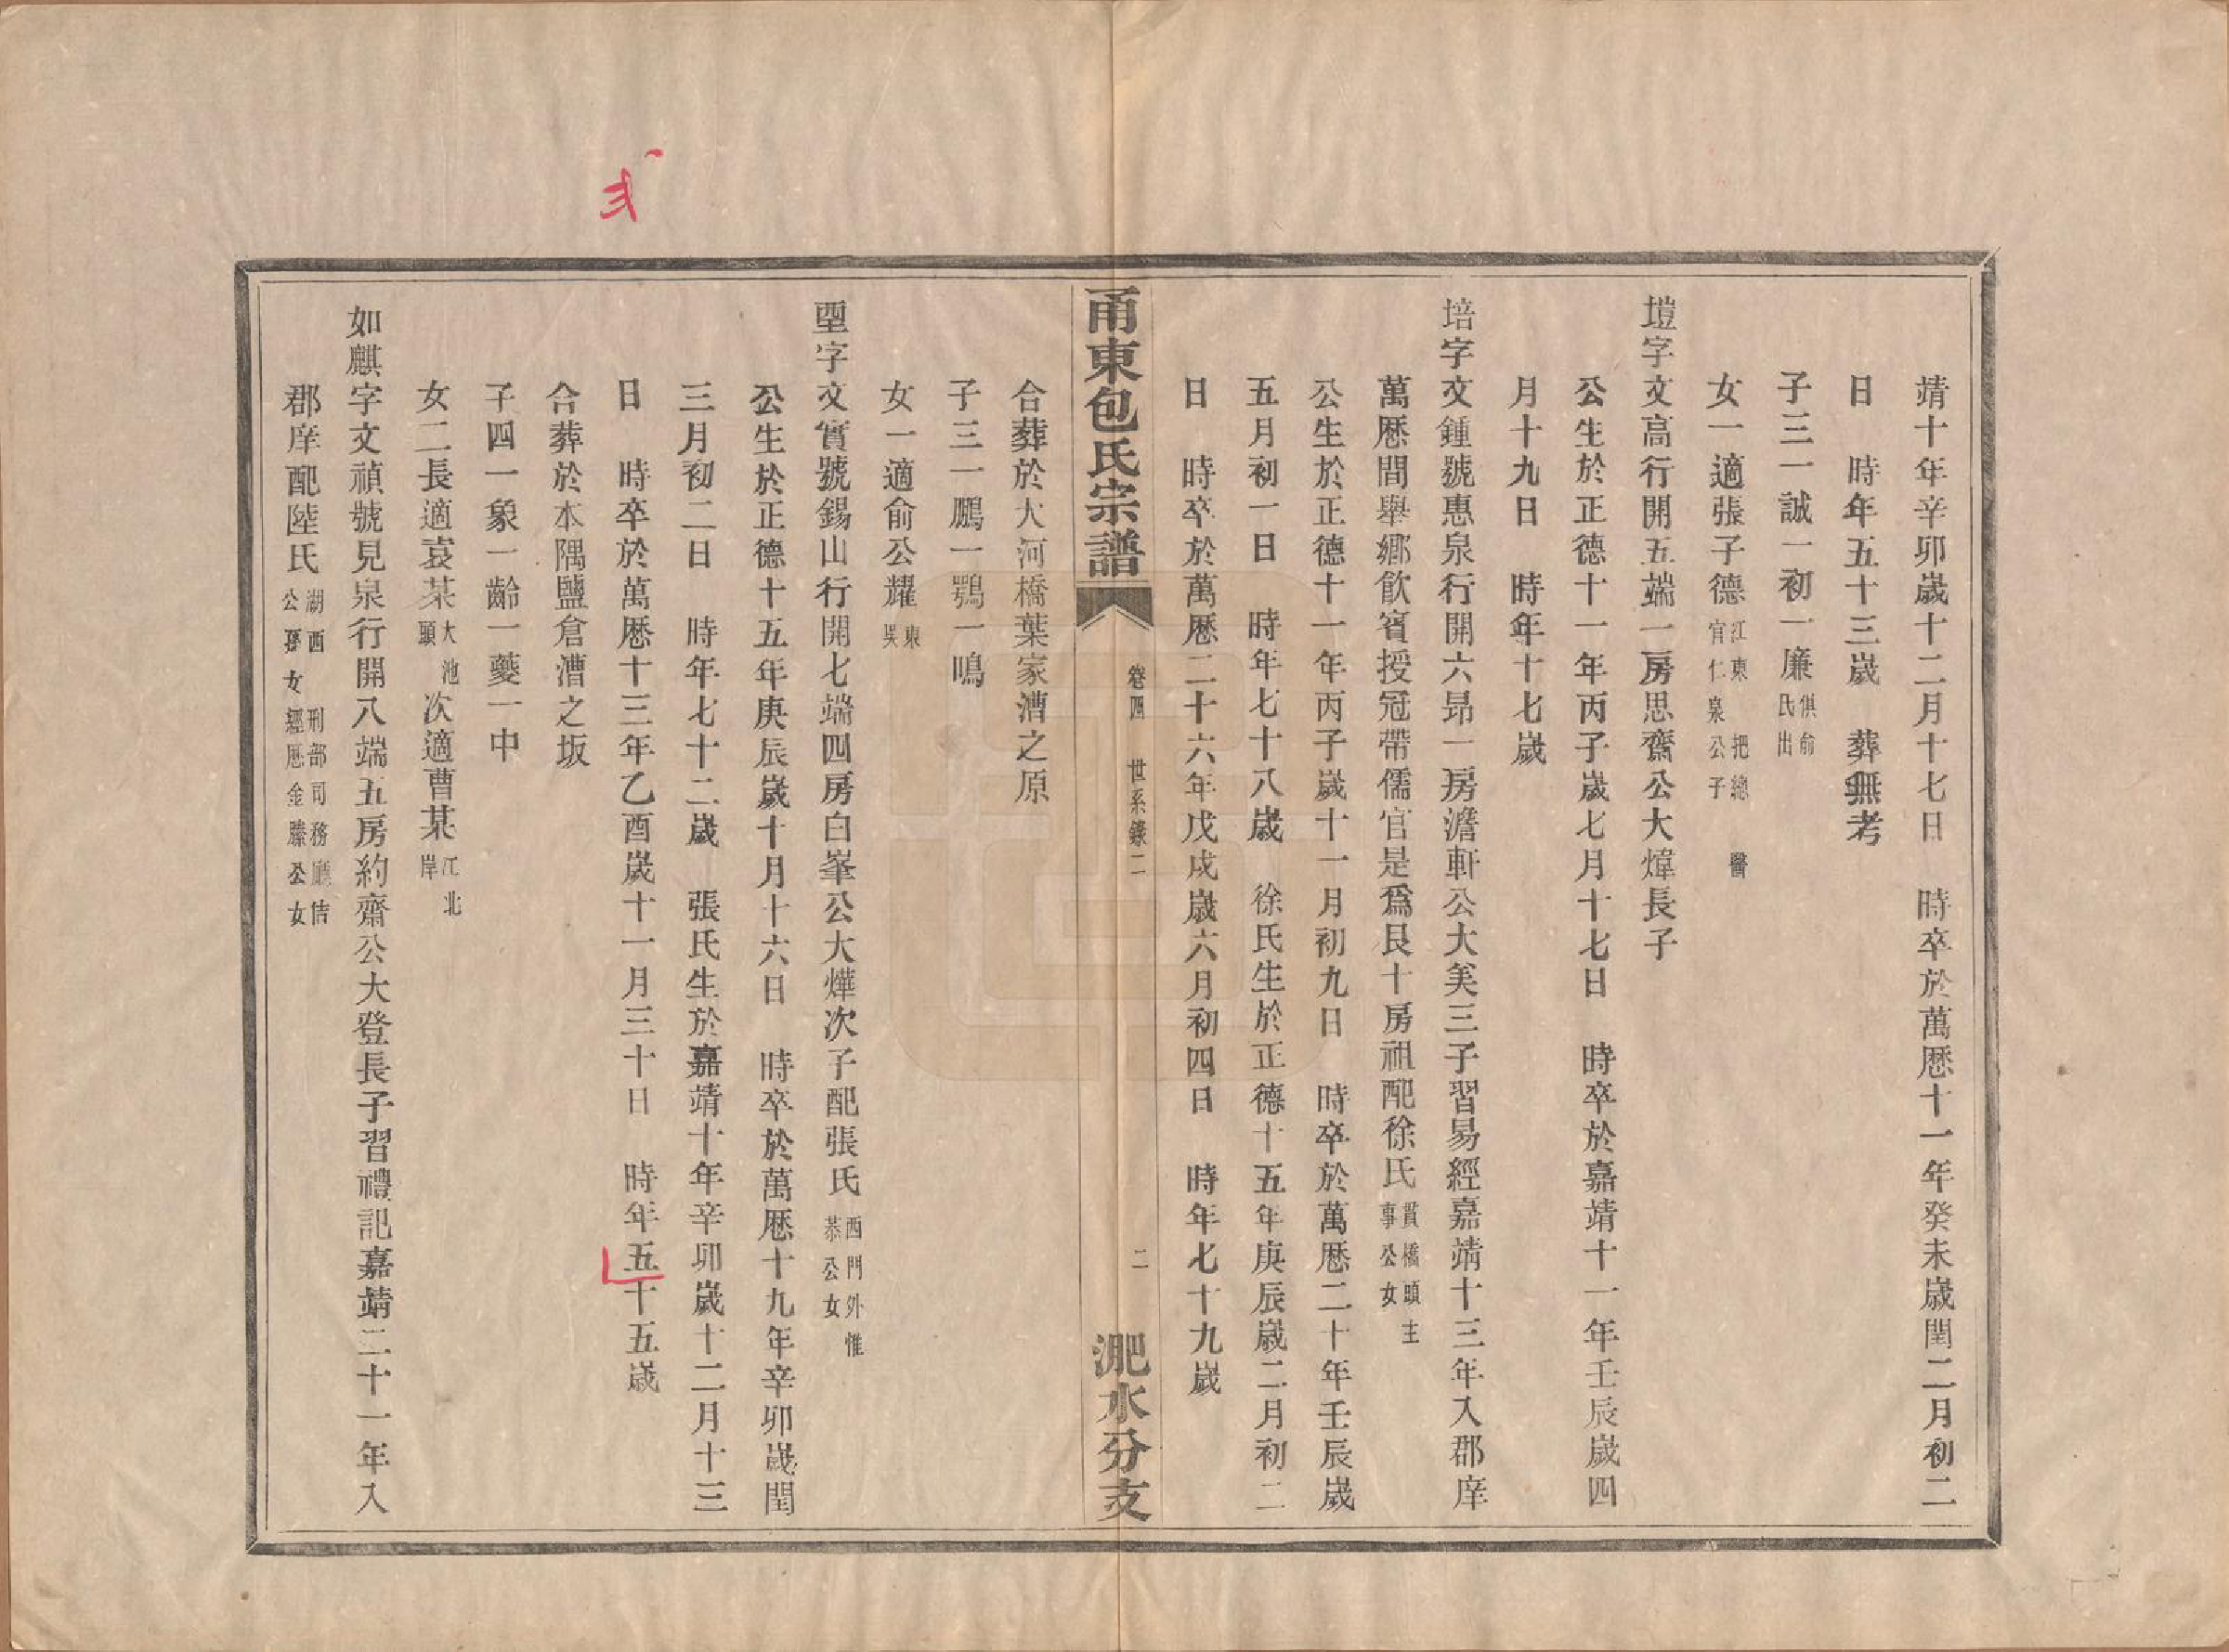 靖十年辛卯歲十二月十七日　時卒於萬厯十一年癸未歲閏二月初二
日　時年五十三歲　葬無考
子三一誠一初一廉俱俞氏出
女一適張子德江東　把總　醫官仁泉公子
塏字文高行開五端一房思齋公大煒長子
公生於正德十一年丙子歲七月十七日　時卒於嘉靖十一年壬辰歲四
月十九日　時年十七歲
培字文鍾號惠泉行開六昻一房澹軒公大美三子習易經嘉靖十三年入郡庠
萬厯間舉鄉飲賓授冠帶儒官是爲艮十房祖配徐氏貫橋頭主事公女
公生於正德十一年丙子歲十一月初九日　時卒於萬厯二十年壬辰歲
五月初一日　時年七十八歲　徐氏生於正德十五年庚辰歲二月初二
日　時卒於萬厯二十六年戊戌歲六月初四日　時年七十九歲
甬東包氏宗譜　卷四　世系錄二　二　淝水分支
合葬於大河橋葉家漕之原
子三一鵬一鶚一鳴
女一適俞公耀東吳
堊字文實號錫山行開七端四房白峯公大燁次子配張氏西門外惟恭公女
公生於正德十五年庚辰歲十月十六日　時卒於萬厯十九年辛卯歲閏
三月初二日　時年七十二歲　張氏生於嘉靖十年辛卯歲十二月十三
日　時卒於萬厯十三年乙酉歲十一月三十日　時年五十五歲
合葬於本隅鹽倉漕之坂
子四一象一齡一夔一中
女二長適袁某大池頭次適曹某江北岸
如麒字文禎號見泉行開八端五房約齋公大登長子習禮記嘉靖二十一年入
郡庠配陸氏湖西　刑部司務廳佶公孫女經厯金縢公女